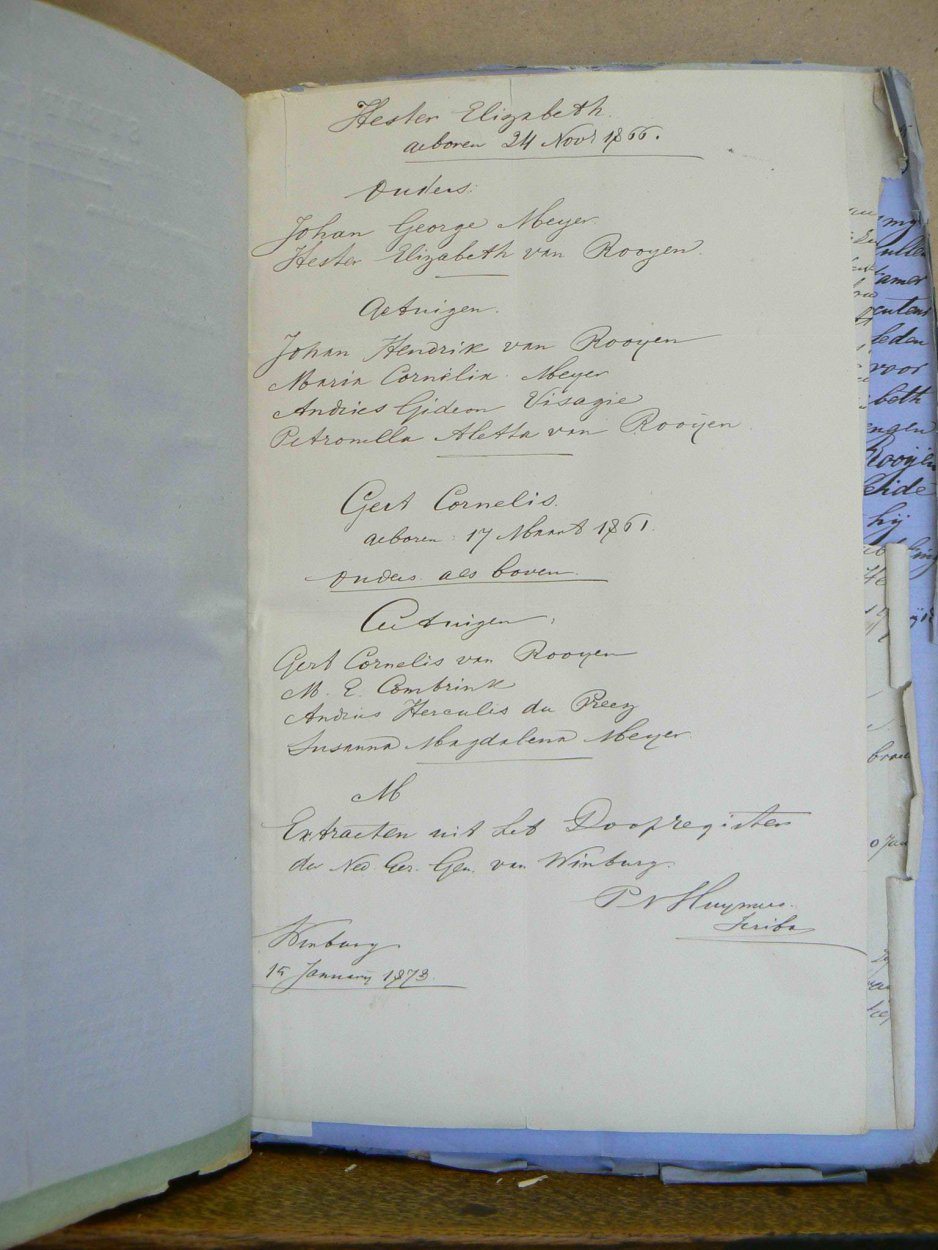 Hester Elizabeth
geboren 24 Novr 1866.
Ouders:
Johan George Meyer
Hester Elizabeth van Rooyen
Getuigen.
Johan Hendrik van Rooyen
Maria Cornelia Meyer
Andries Gideon Visagie
Petronella Aletta van Rooijen
Gert Cornelis.
geboren 17 Maart 1861.
Ouders als boven.
Getuigen,
Gert Cornelis van Rooyen
M. E. Combrink
Andries Herculis du Preez
Susanna Magdalena Meyer
Extracten uit het Doopregister
der Ned Ger. Gem. van Winburg.
Scriba
Winburg
January 1873.
my
amer
leden
voor
beth
engen
Rooijen
leide
hij